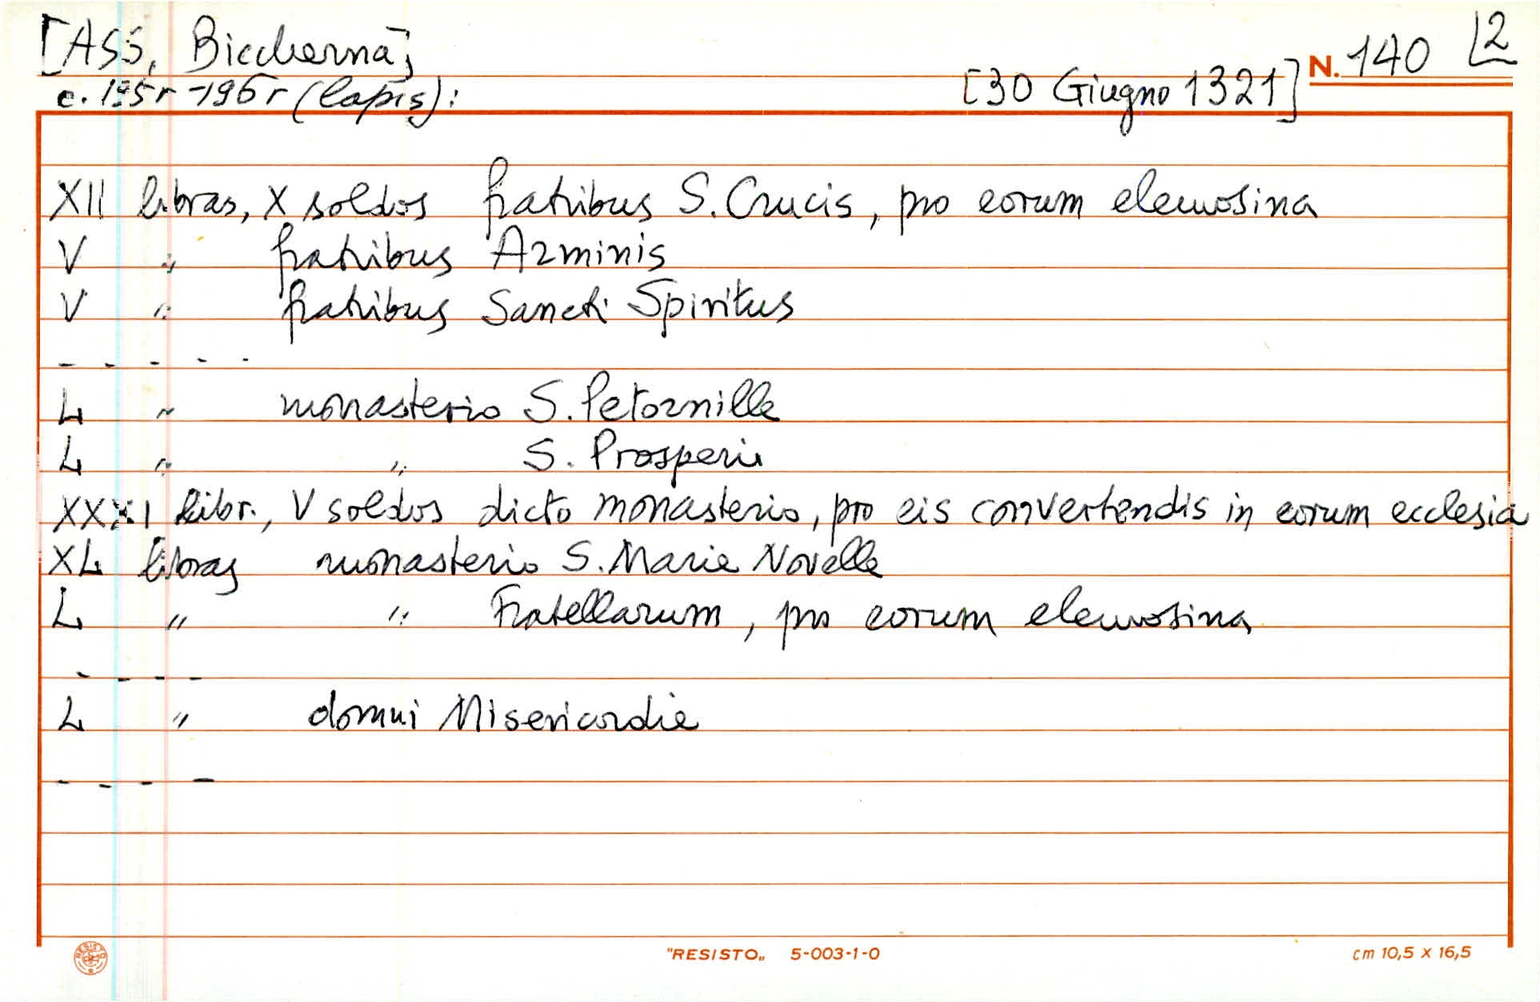 [ASS, Biccherna]
N. 140 2
c. 195r-196r (lapis):
[30 Giugno 1321]
XII libras, X soldos fratribus S. Crucis, pro eorum elemosina
V " fratribus Arminis
V " fratribus Sancti Spiritus
- - - - -
L " monasterio S. Petornille
L " " S. Prosperi
XXXI libr., V soldos dicto monasterio, pro eis convertendis in eorum ecclesia
XL libras monasterio S. Marie Novelle
L " " Fratellarum, pro eorum elemosina
- - - -
L " domui Misericordie
- - - -
RESISTO
"RESISTO„ 5-003-1-0
cm 10,5 x 16,5